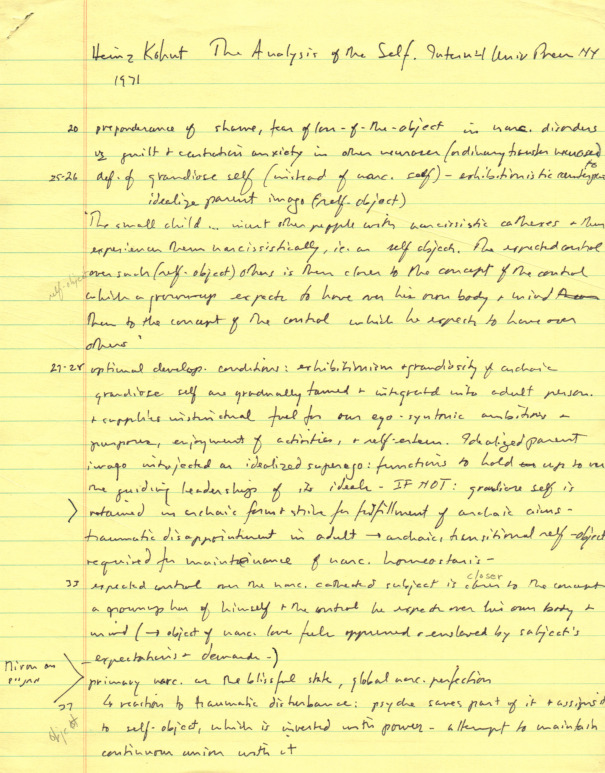 Heinz Kohut The Analysis of the Self. Internatl Univ Press NY
1971
20 preponderance of shame, fear of loss-of-the-object in narc. disorders
vs guilt + castration anxiety in other neuroses (ordinary transfer neuroses)
25-26 def. of grandiose self (instead of narc. self) - exhibitionistic counterpart to
idealize parent imago (self-object)
"The small child ... invest other people with narcissistic cathexes + thus
experiences them narcissistically, i.e. as self objects. The expected control
self-object over such (self-object) others is then closer to the concept of the control
which a grownup expects to have over his own body + mind
than to the concept of the control which he expects to have over
others"
27-28 optimal develop. conditions: exhibitionism + grandiosity of archaic
grandiose self are gradually tamed + integrated into adult person.
+ supplies instinctual fuel for our ego-syntonic ambitions +
purposes, enjoyment of activities, + self-esteem. Idealized parent
imago introjected as idealized superego: functions to hold up to us
the guiding leaderships of its ideals - IF NOT: grandiose self is
> retained in archaic form + strive for fulfillment of archaic aims -
traumatic disappointment in adult → archaic, transitional self-object
required for maintainance of narc. homeostasis -
33 expected control over the narc. cathected subject is closer to the concept
a grownup has of himself + the control he expects over his own body +
mind (→ object of narc. love feels oppressed + enslaved by subject's
expectations + demands -)
Miron on primary narc. as the blissful state, global narc. perfection
37 ↳ reaction to traumatic disturbance: psyche saves part of it + assigns it
object to self-object, which is invested with power - attempt to maintain
continuous union with it